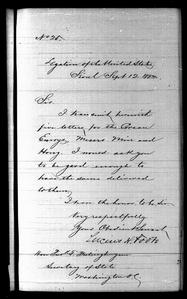 No 28.
Legation of the United States,
Seoul Sept 12. 1883
Sir.
I transmit herewith
five letters for the Corean
Envoys, Messrs Min and
Hong. I would ask you
to be good enough to
have the same delivered
to them,
I have the honor to be
Very respectfully
Your Obedient Servant
Lucius H. Foote
Hon Fred. T. Frelinghuysen
Secretary of State
Washington D.C.